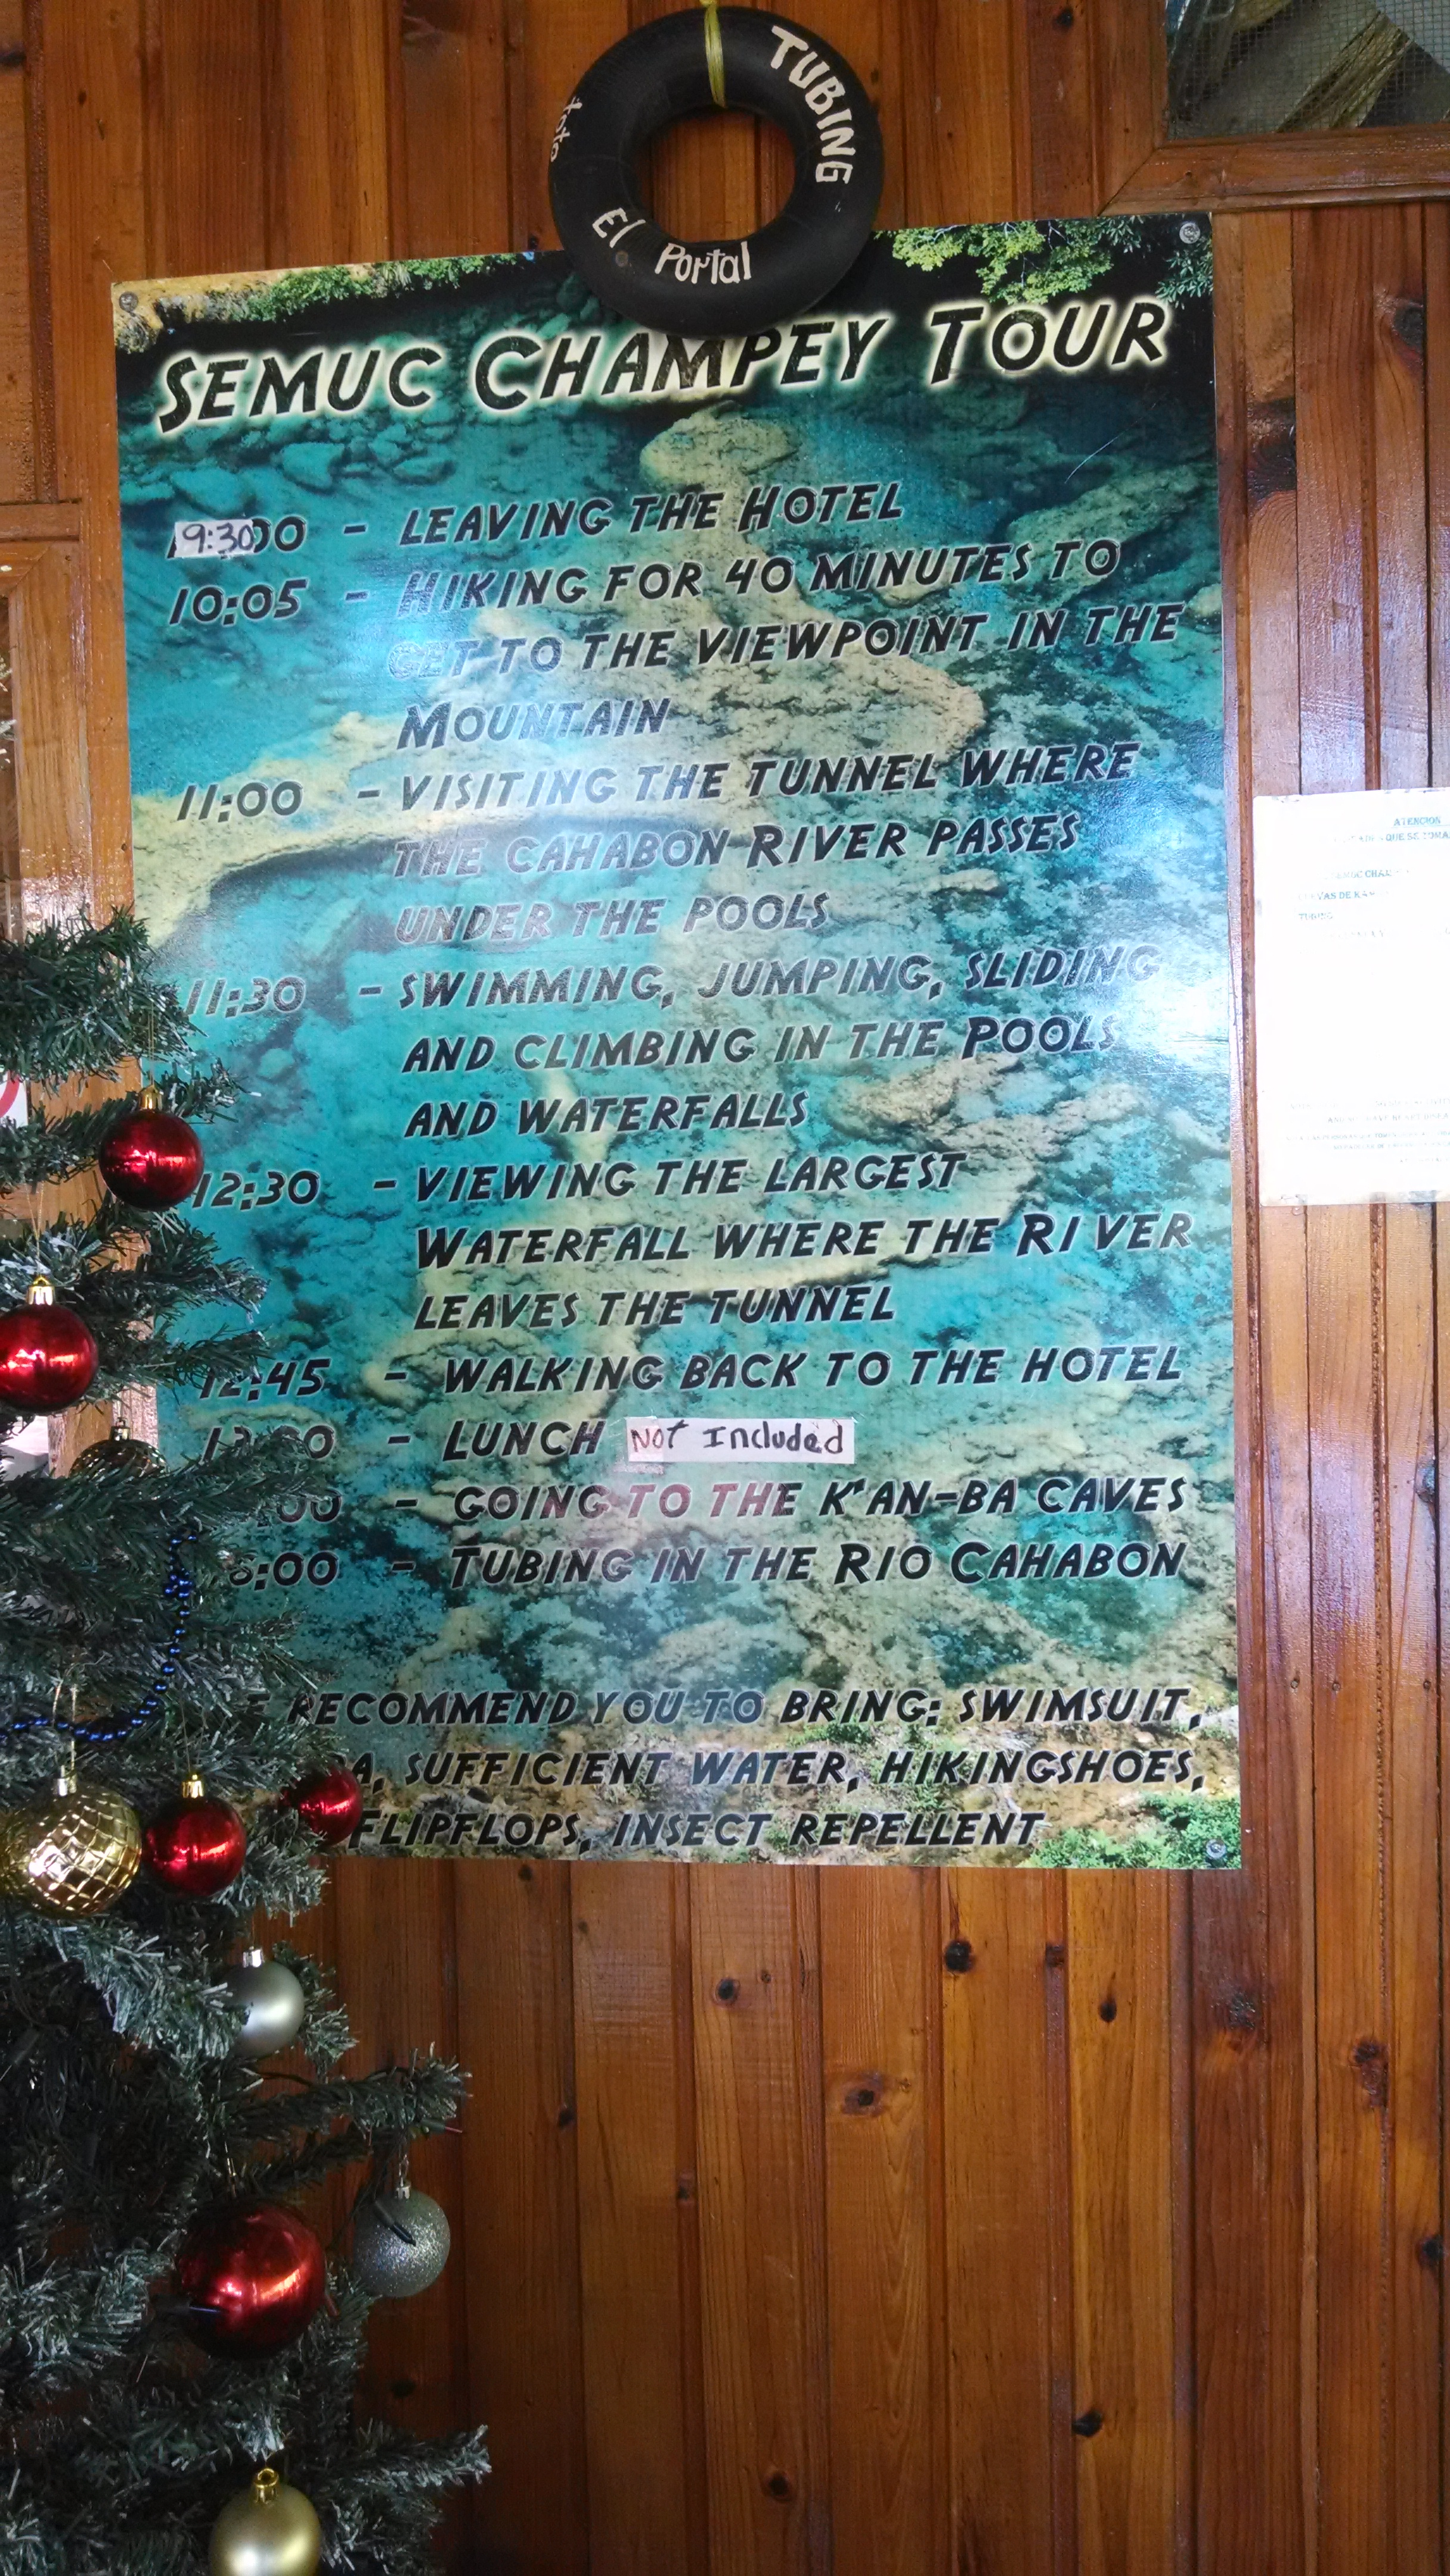 TUBING
xoto
El Portal
SEMUC CHAMPEY TOUR
9:30 - LEAVING THE HOTEL
10:05 - HIKING FOR 40 MINUTES TO
GET TO THE VIEWPOINT IN THE
MOUNTAIN
11:00 - VISITING THE TUNNEL WHERE
THE CAHABON RIVER PASSES
UNDER THE POOLS
11:30 - SWIMMING, JUMPING, SLIDING
AND CLIMBING IN THE POOLS
AND WATERFALLS
12:30 - VIEWING THE LARGEST
WATERFALL WHERE THE RIVER
LEAVES THE TUNNEL
12:45 - WALKING BACK TO THE HOTEL
- LUNCH Not Included
- GOING TO THE K'AN-BA CAVES
- TUBING IN THE RIO CAHABON
RECOMMEND YOU TO BRING: SWIMSUIT,
SUFFICIENT WATER, HIKINGSHOES,
FLIPFLOPS, INSECT REPELLENT
ATENCION